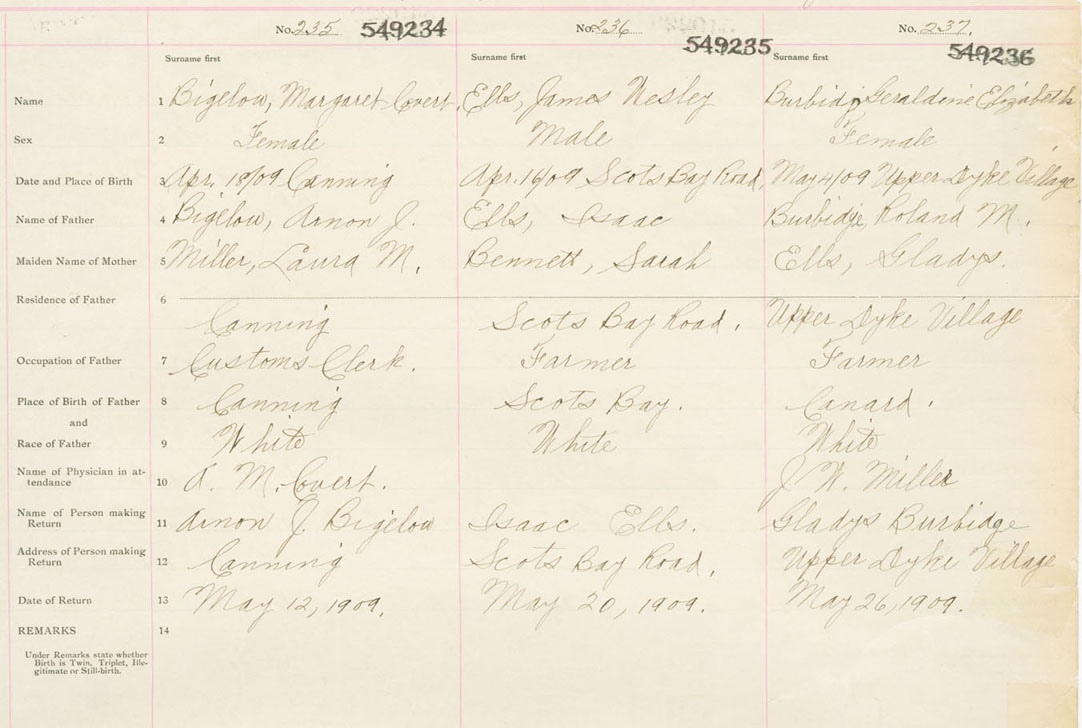 No. 235 549234 No. 236 549235 No. 237. 549236
Surname first Surname first Surname first
Name 1 Bigelow, Margaret Covert, Ells, James Wesley Burbidge Geraldine Elizabeth
Sex 2 Female Male Female
Date and Place of Birth 3 Apr. 18/09 Canning Apr. 16/09 Scots Bay Road, May 4/09 Upper Dyke Village
Name of Father 4 Bigelow, Arnon J. Ells, Isaac Burbidge, Roland M.
Maiden Name of Mother 5 Miller, Laura M. Bennett, Sarah Ells, Gladys.
Residence of Father 6
Canning Scots Bay Road. Upper Dyke Village
Occupation of Father 7 Customs Clerk. Farmer Farmer
Place of Birth of Father 8 Canning Scots Bay. Canard.
and
Race of Father 9 White White White
Name of Physician in at-
tendance 10 A. M. Covert. J W. Miller
Name of Person making
Return 11 Arnon J. Bigelow Isaac Ells. Gladys Burbidge
Address of Person making
Return 12 Canning Scots Bay Road. Upper Dyke Village
Date of Return 13 May 12, 1909. May 20, 1909. May 26, 1909.
REMARKS 14
Under Remarks state whether
Birth is Twin, Triplet, Ille-
gitimate or Still-birth.